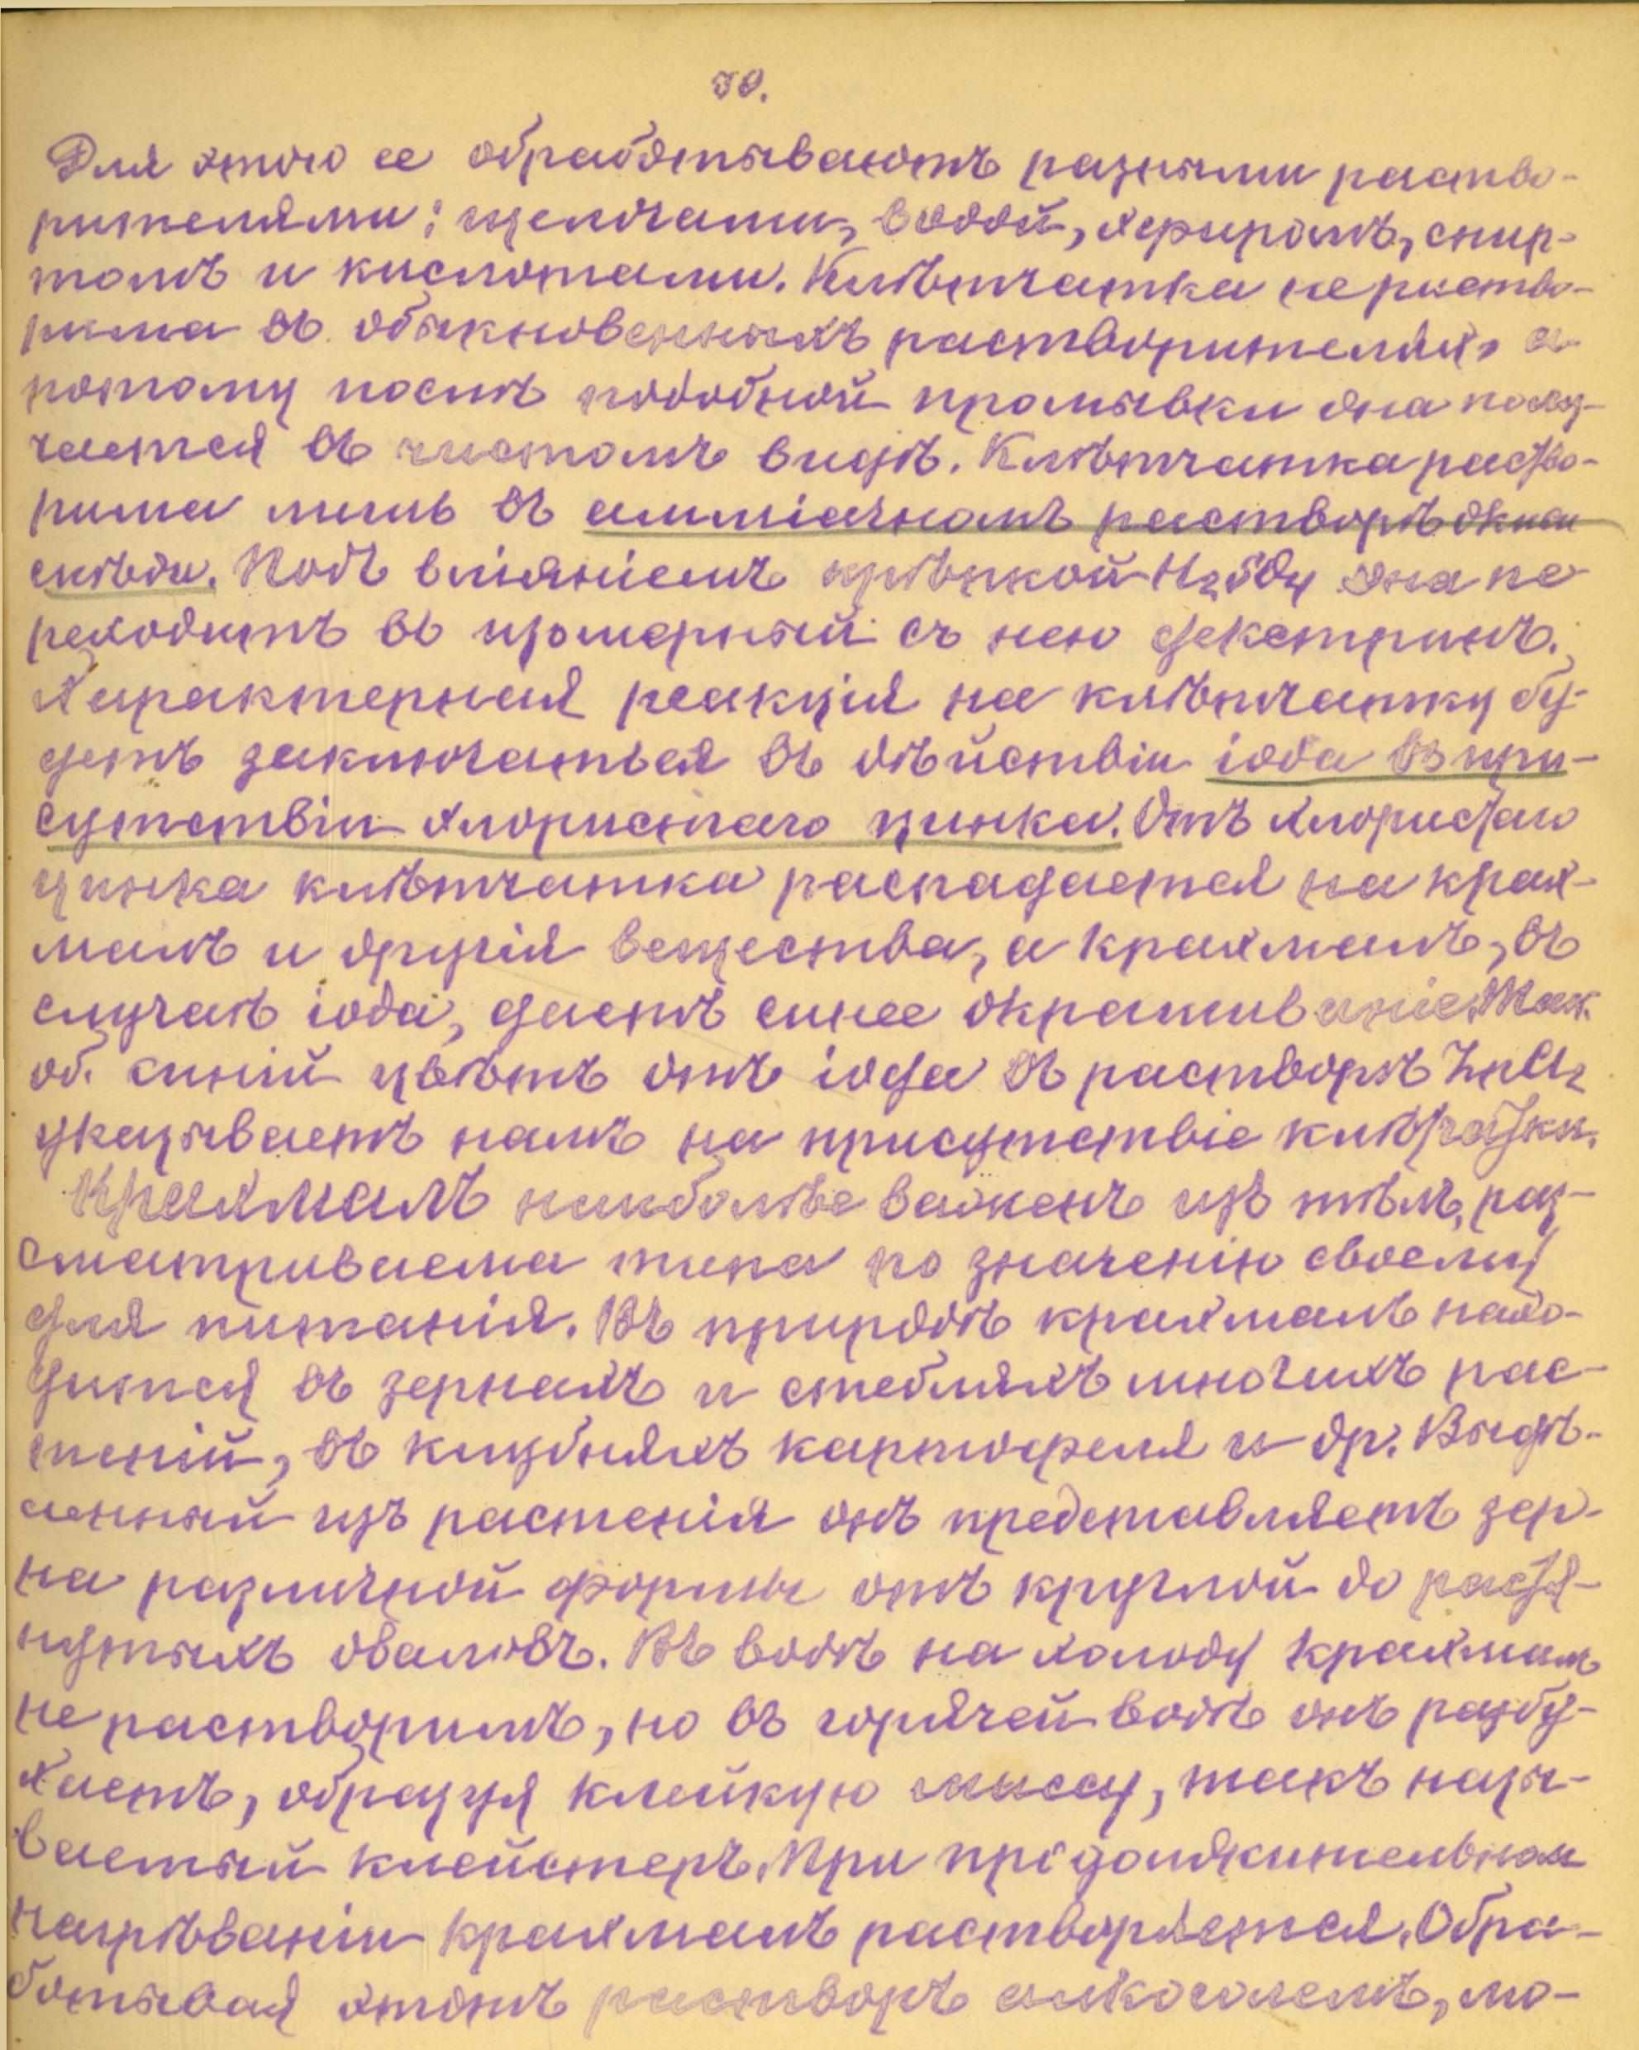 70.
Для этого ее обработываютъ разными раство-
рителями: щелочами, водой, эфиромъ, спир-
томъ и кислотами. Клѣтчатка не раство-
рима въ обыкновенныхъ растворителях, а
потому послѣ подобной промывки она полу-
чается въ чистомъ видѣ. Клѣтчатка раство-
рима лишь въ амміачномъ растворѣ окиси
мѣди. Подъ вліяніемъ крѣпкой H₂SO₄ она пе
реходитъ въ изомерный съ нею декстринъ.
Характерная реакція на клѣтчатку бу-
детъ заключаться въ дѣйствіи іода въ при-
сутствіи хлористаго цинка. Отъ хлористаго
цинка клѣтчатка распадается на крах-
малъ и другія вещества, а крахмалъ, въ
случаѣ іода, даетъ синее окрашиваніе. Так.
об. синій цвѣтъ отъ іода въ растворѣ ZnCl₂
указываетъ намъ на присутствіе клѣтчатки.
Крахмалъ наиболѣе важенъ изъ тѣлъ, раз-
сматриваема типа по значенію своему
для питанія. Въ природѣ крахмалъ нахо-
дится въ зернахъ и стебляхъ многихъ рас-
теній, въ клубняхъ картофеля и др. Выдѣ-
ленный изъ растенія онъ представляетъ зер-
на различной формы отъ круглой до растя-
нутыхъ оваловъ. Въ водѣ на холоду крахмалъ
не растворимъ, но въ горячей водѣ онъ разбу-
хаетъ, образуя клейкую массу, такъ назы-
ваемый клейстеръ. При продолжительном
нагрѣваніи крахмалъ растворяется. Обра-
ботывая этотъ растворъ алкоголемъ, мо-